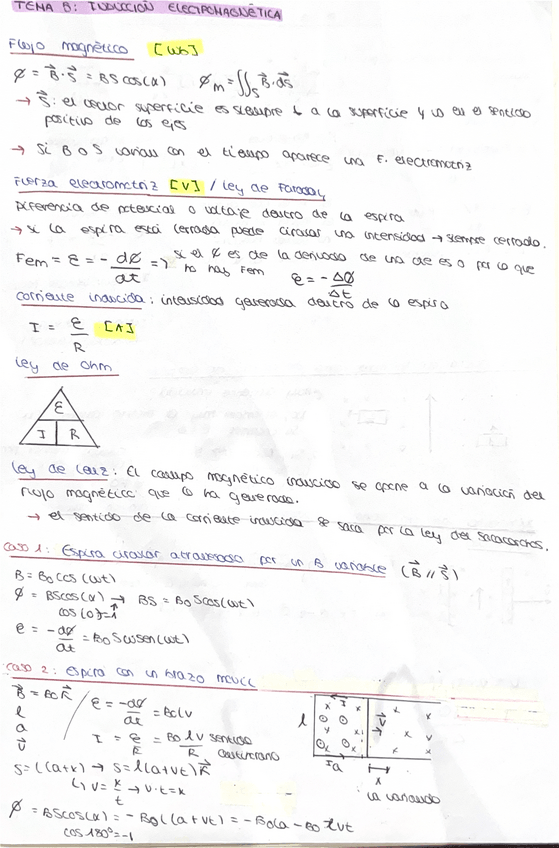 TEMA 5: INDUCCIÓN ELECTROMAGNÉTICA
Flujo magnético [Wb]
Ø = B⃗·S⃗ = BS cos(α) Ø_m = ∬_S B⃗·dS⃗
→ S⃗: el vector superficie es siempre ⊥ a la superficie y va en el sentido
positivo de los ejes
→ Si B o S varían con el tiempo aparece una F. electromotriz
Fuerza electromotriz [V] / Ley de Faraday
Diferencia de potencial o voltaje dentro de la espira
→ si la espira está cerrada puede circular una intensidad → siempre cerrado.
Fem = ε = - dØ/dt => si el Ø es cte la derivada de una cte es 0 por lo que
no hay Fem ε = - ΔØ/Δt
Corriente inducida: intensidad generada dentro de la espira
I = ε/R [A]
Ley de Ohm
ε
I R
Ley de Lenz: El campo magnético inducido se opone a la variación del
flujo magnético que lo ha generado.
→ el sentido de la corriente inducida se saca por la ley del sacacorchos.
Caso 1: Espira circular atravesada por un B variable (B⃗ // S⃗)
B = B0 cos (ωt)
Ø = BS cos(α) → BS = B0 S cos(ωt)
cos(0)=1
ε = -dØ/dt = B0 S ω sen(ωt)
Caso 2: Espira con un brazo
B⃗ = B0 K⃗
l
a
v⃗
ε = -dØ/dt = B0 l v
I = ε/R = B0 l v/R sentido
S = l(a+x) → S = l(a+vt) K⃗
↳ v = x/t → v·t = x
Ø = BS cos(α) = - B0 l(a+vt) = - B0 l a - B0 l vt
cos 180º = -1
I
l
v⃗
I a
x
va variando